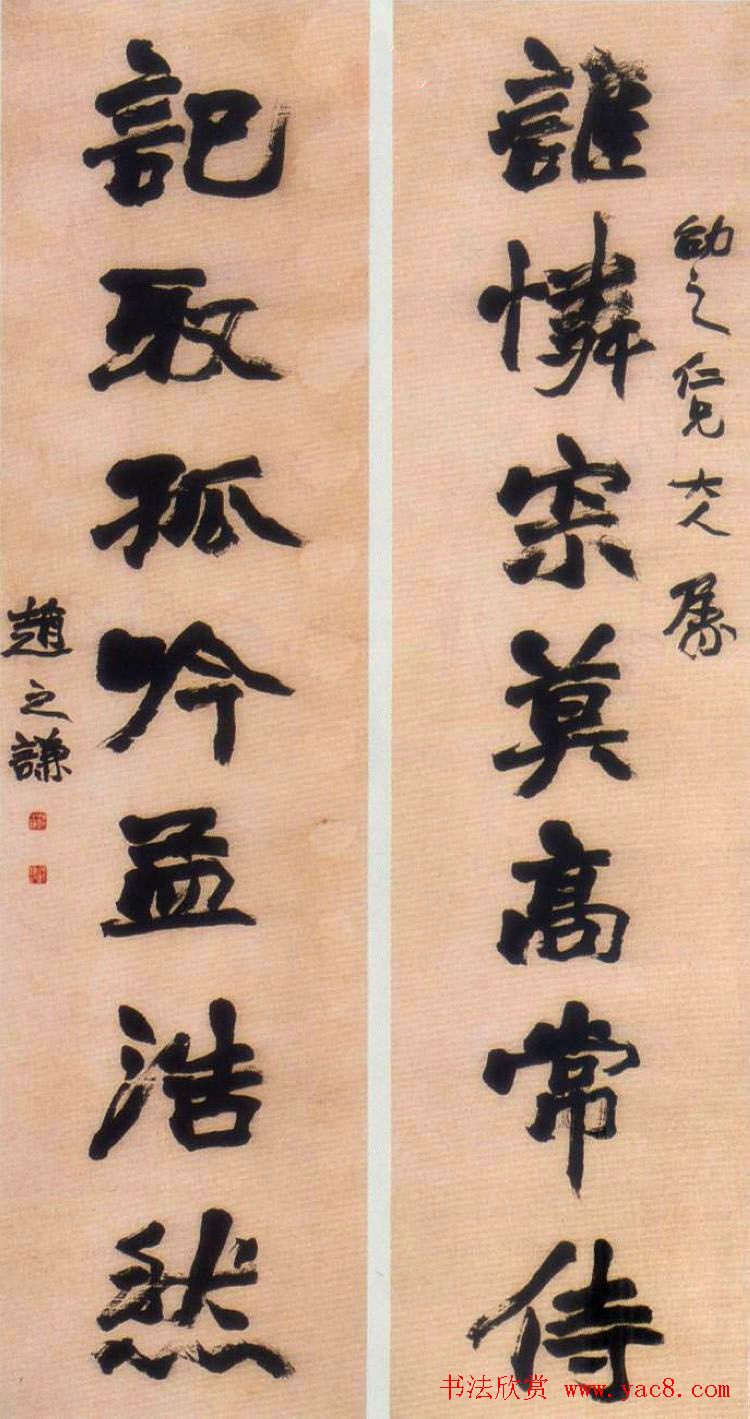 幼之仁兄大人属
誰憐宗莫高常侍
記取孤吟孟浩然
趙之謙
书法欣赏 www.yac8.com